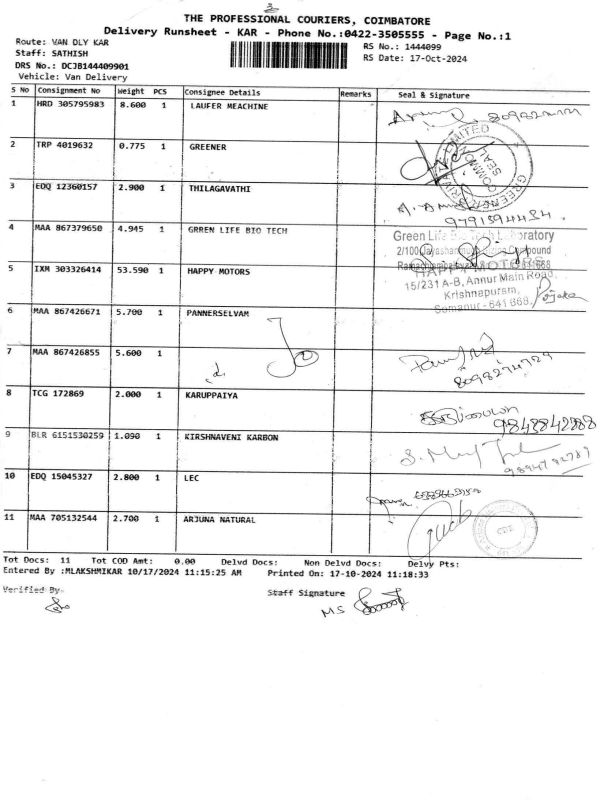 THE PROFESSIONAL COURIERS, COIMBATORE
Delivery Runsheet - KAR - Phone No.:0422-3505555 - Page No.:1
Route: VAN DLY KAR
RS No.: 1444099
Staff: SATHISH
RS Date: 17-Oct-2024
DRS No.: DCJB144409901
Vehicle: Van Delivery
S No Consignment No Weight PCS Consignee Details Remarks Seal & Signature
1 HRD 305795983 8.600 1 LAUFER MEACHINE
2 TRP 4019632 0.775 1 GREENER
3 EDQ 12360157 2.900 1 THILAGAVATHI
9791394484.
4 MAA 867379650 4.945 1 GRREN LIFE BIO TECH
5 IXM 303326414 53.590 1 HAPPY MOTORS
HAPPY MOTORS
15/231 A-B, Annur Main Road,
Krishnapuram,
Somanur - 641 668.
Pooja
6 MAA 867426671 5.700 1 PANNERSELVAM
7 MAA 867426855 5.600 1
8098274729
8 TCG 172869 2.000 1 KARUPPAIYA
9 BLR 6151530259 1.090 1 KIRSHNAVENI KARBON
10 EDQ 15045327 2.800 1 LEC
11 MAA 705132544 2.700 1 ARJUNA NATURAL
Tot Docs: 11 Tot COD Amt: 0.00 Delvd Docs: Non Delvd Docs: Delvy Pts:
Entered By :MLAKSHMIKAR 10/17/2024 11:15:25 AM Printed On: 17-10-2024 11:18:33
Verified By- Staff Signature
MS